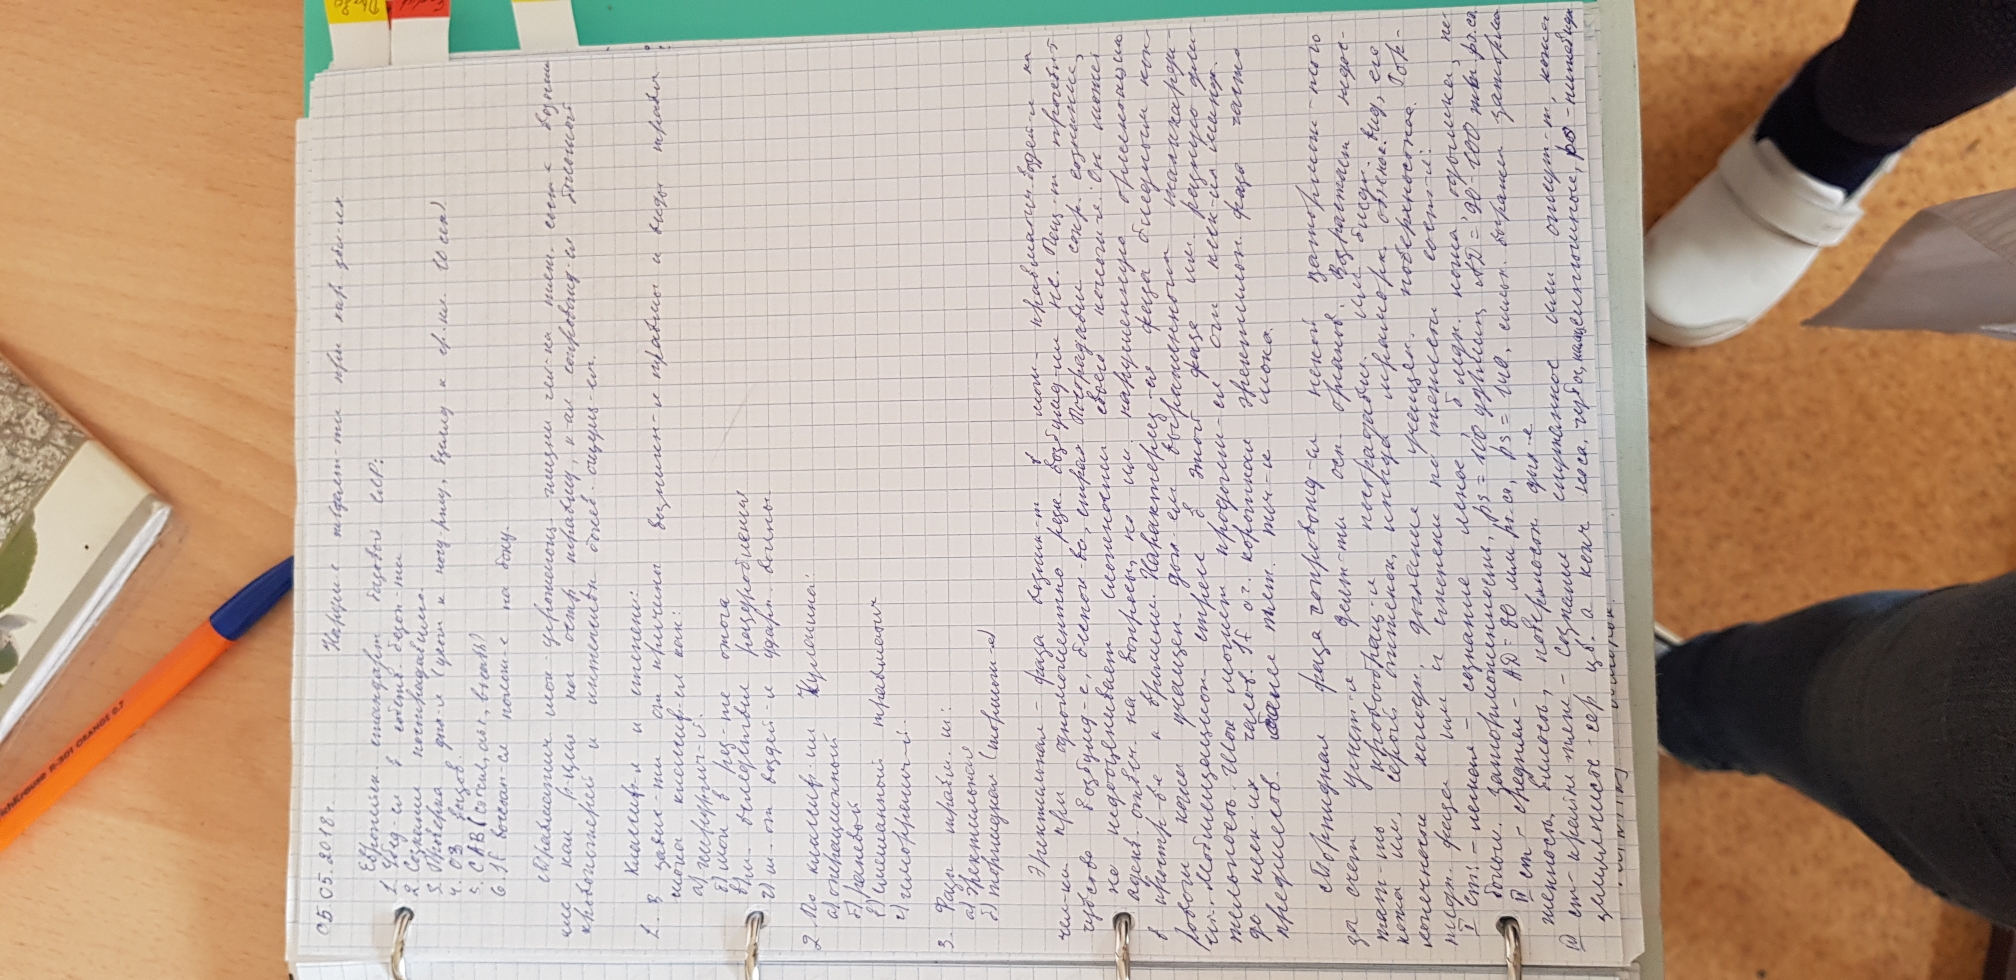 ichKrause R-301 ORANGE 0.7
05.05.2018г.
при
Европейск. стандарт базовой СЛР:
1. Убед-ся в собств. безоп-ти
2. Сознание пострадавшего.
3. Проверка дых-я (ухом к носу-рту, взгляд к гр. кл. 10 сек)
4. 03 вызов.
5. CAB
6. If восстан-ся полож-е на боку.
Травматич шок - угрожающ. жизни чел-ка тяж. сост-е возник
шее как р-ция на остр травму, к-ая сопровожд-ся большой
кровопотерей и интенсивн болев. ощущ-ем.
Классиф-я и степени:
1. В завис-ти от причины возникн-я травмы и вида травм
шока классиф-ся как:
а)
б) шок в рез-те ожога
в) ш. вследствии раздробления
г) ш. от воздей-я ударн. волны
2. По классиф-ии Кулагина:
а) операционный
б) раневой
в) смешанный травматич
г) геморрагич-й.
3. Фазы травм. ш:
а) эректильная
б) торпидная (тормож-я)
Эректильная - фаза возник-т в мом. травматич. возд-я на
чел-ка при одномоментно резк возбужд-ии НС. Пац-т проявит
чувство возбужд-е, беспок-во, страх. Пострадавш сохр. сознание,
но недооценивает сложности своего полож-я. Он может
адекв. отвеч. на вопросы, но им. нарушенную ориентацию
в простр-ве и времени. Характериз-ся фаза бледным пок-
ровом кожи учащен. дых-ем выраженной тахикарди-
ей. Мобилизацион стресс в этой фазе им. разную дли-
тельность. Шок может продолж-ся от неск-их минут
до неск-их часов. If оч. короткая эректильн. фаза часто
предшеств. более тяж. теч-е шока.
Торпидная фаза сопровожд-ся некой заторможен-тью
за счет угнет-я деят-ти осн. органов. Возрастает недос-
тат-ть кровообращ-я пострадавш. им бледн. вид, его
кожа им. серый оттенок, иногда мраморн.
конечности холодн. дыхание учащен. поверхностное. Тор-
пидн. фаза им 4 степени по тяжести сост-я:
I ст: - легкая - сознание ясное, бледн. кожа, одышка, не-
больш. заторможенность, ps = 100 уд/мин, AD = 90-100 мм. рт.ст.
II ст - средняя - AD = 80 мм рт.ст, ps = 140, сильн. выражен затормо
женность, вялость, поверхностн дых-е
III ст - крайне тяж - сознание спутанное или отсут-т, кожа
землянисто-сер цв. а конч носа, губы, синюшные, ps - нитевидн